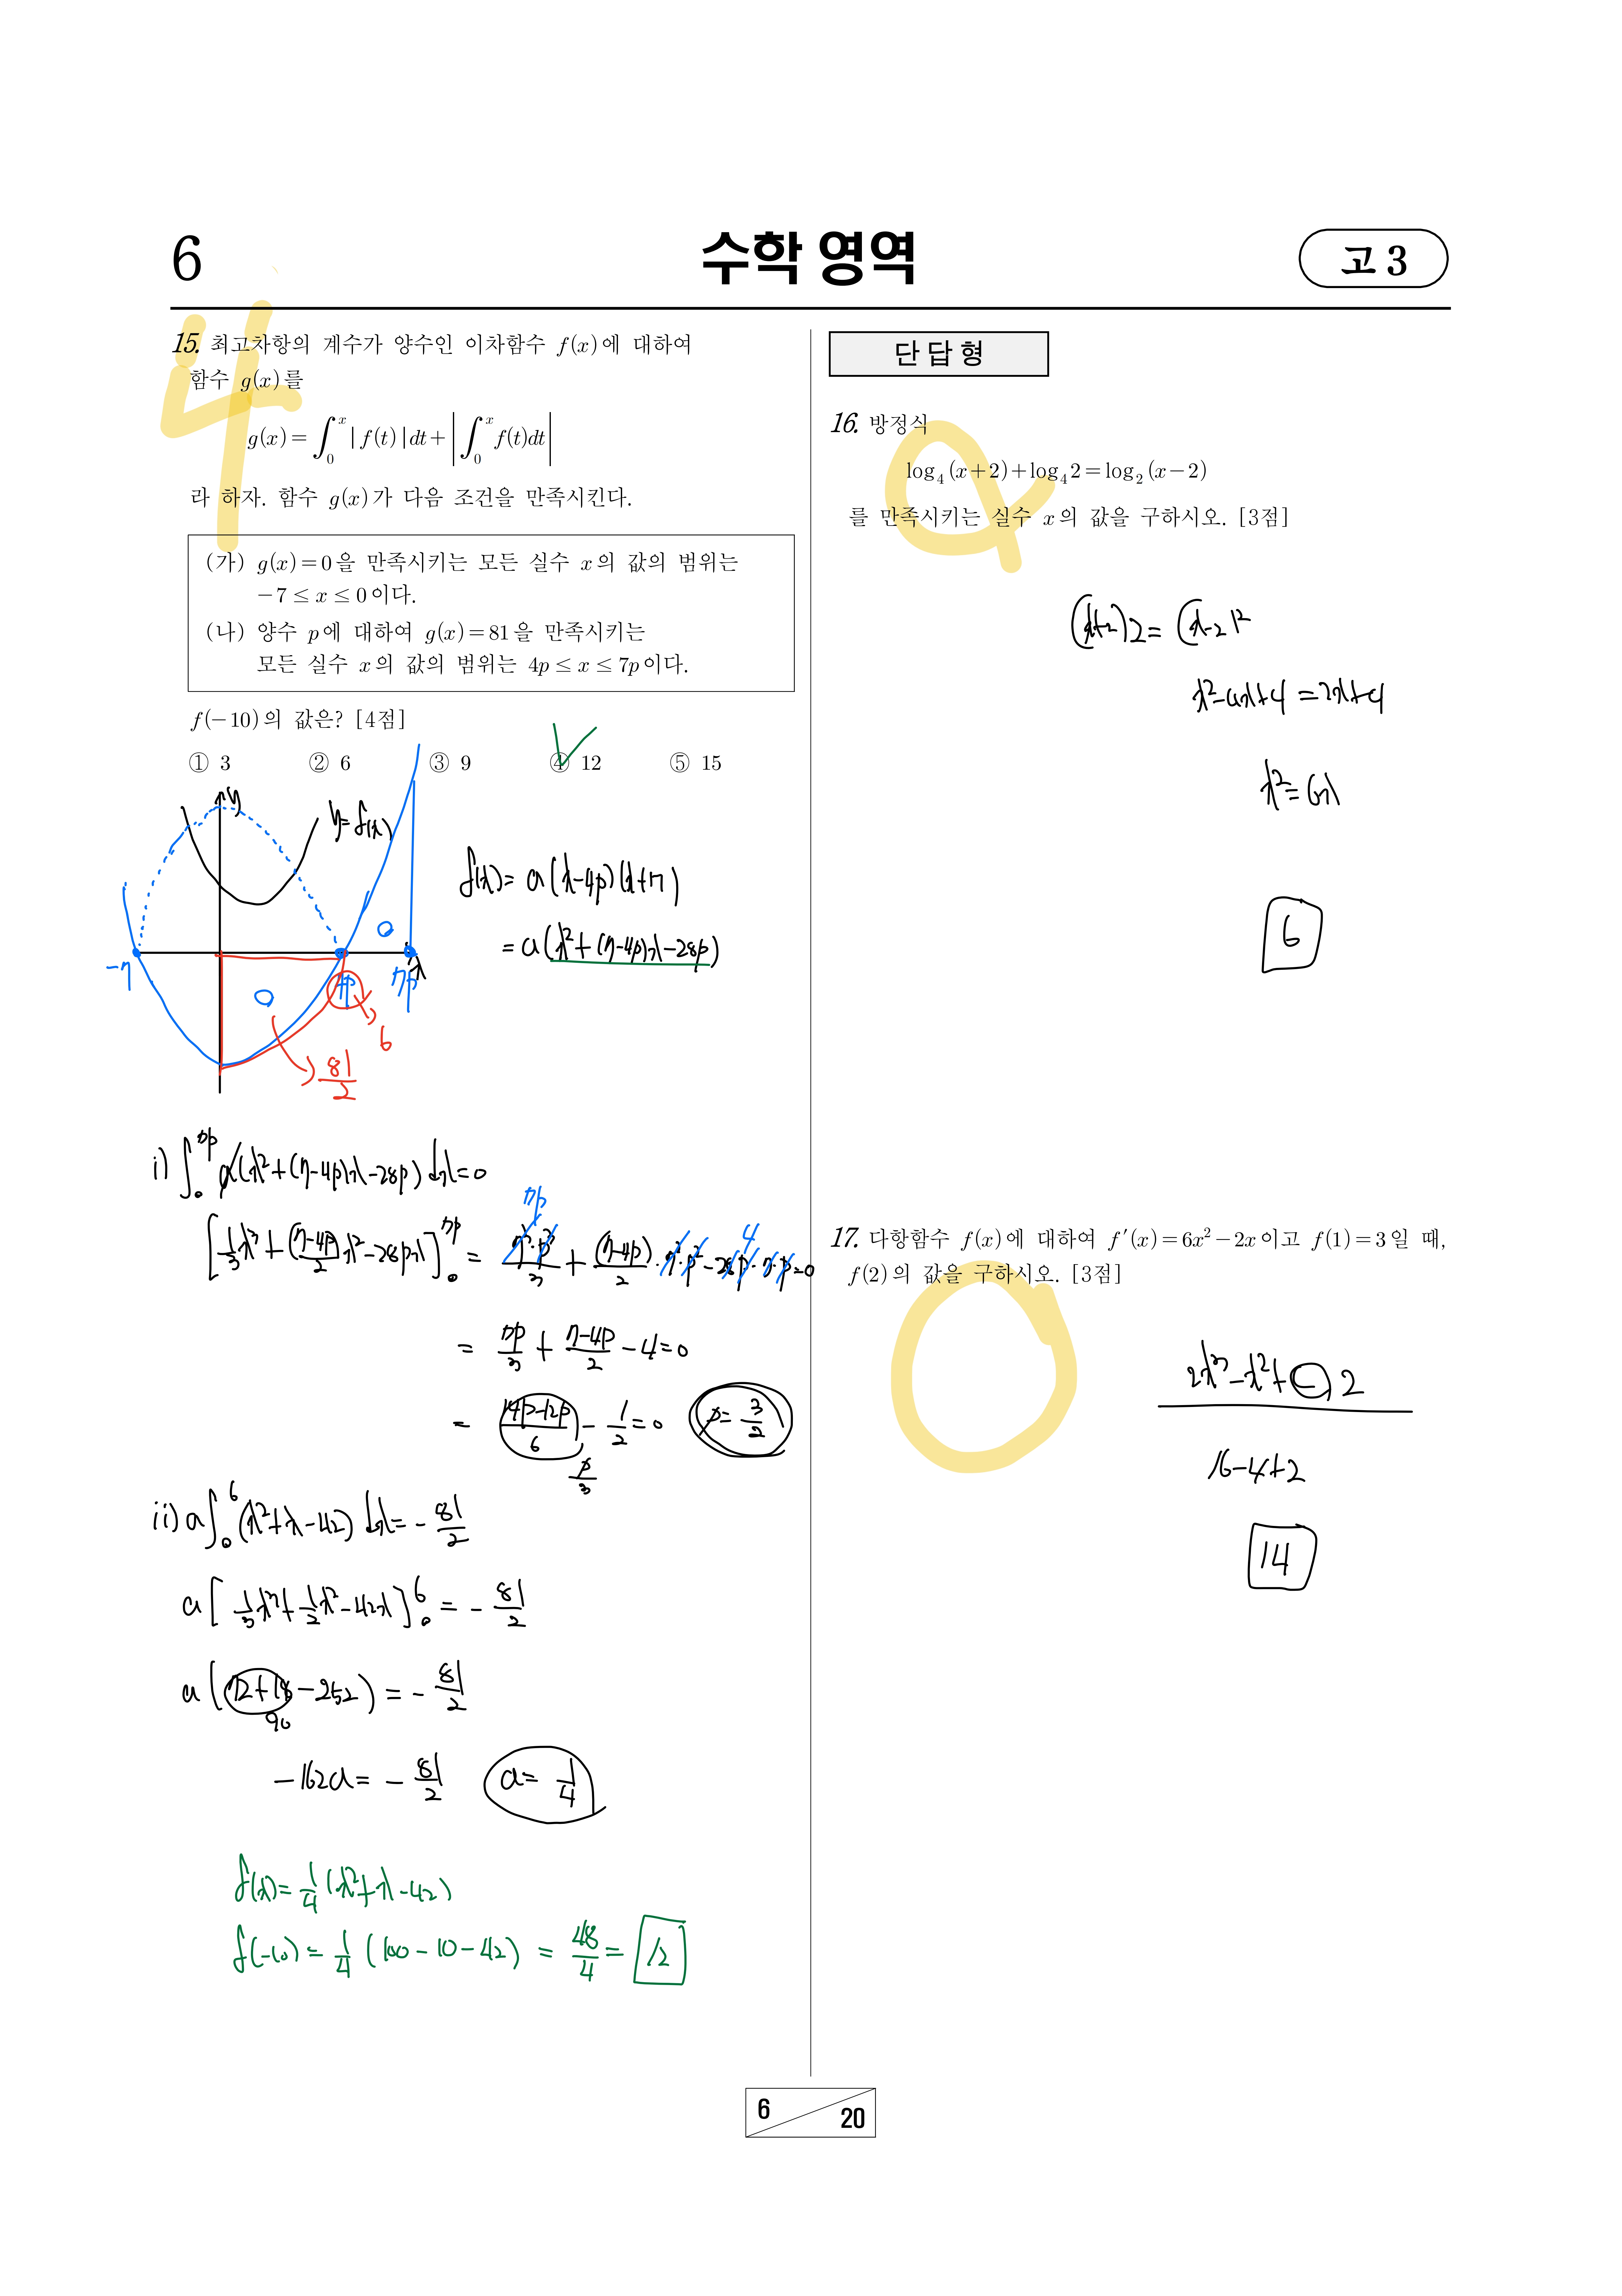 6
수학 영역
고 3
4
15. 최고차항의 계수가 양수인 이차함수 f(x)에 대하여
함수 g(x)를
g(x) = ∫₀ˣ |f(t)|dt + |∫₀ˣ f(t)dt|
라 하자. 함수 g(x)가 다음 조건을 만족시킨다.
(가) g(x)=0을 만족시키는 모든 실수 x의 값의 범위는
-7 ≤ x ≤ 0이다.
(나) 양수 p에 대하여 g(x)=81을 만족시키는
모든 실수 x의 값의 범위는 4p ≤ x ≤ 7p이다.
f(-10)의 값은? [4점]
① 3 ② 6 ③ 9 ④ 12 ⑤ 15
y
y=f(x)
-7
4p
7p
x
6
81/2
f(x) = a(x-4p)(x+7)
= a(x²+(7-4p)x-28p)
i) ∫₀^7p a(x²+(7-4p)x-28p)dx=0
[1/3 x³ + (7-4p)/2 x² - 28px]₀^7p = 7³·p³/3 + (7-4p)/2 · 7²·p² - 28p·7·p=0
7p
4
= 7p/3 + (7-4p)/2 - 4 = 0
= (14p-12p)/6 - 1/2 = 0 p = 3/2
p/3
ii) a∫₀⁶ (x²+x-42)dx = -81/2
a[1/3 x³ + 1/2 x² - 42x]₀⁶ = -81/2
a(72+18-252) = -81/2
90
-162a = -81/2 a = 1/4
f(x) = 1/4 (x²+x-42)
f(-10) = 1/4 (100-10-42) = 48/4 = 12
단답형
16. 방정식
log₄(x+2)+log₄2=log₂(x-2)
를 만족시키는 실수 x의 값을 구하시오. [3점]
(x+2)2=(x-2)²
x²-4x+4=2x+4
x²=6x
6
17. 다항함수 f(x)에 대하여 f′(x)=6x²-2x이고 f(1)=3일 때,
f(2)의 값을 구하시오. [3점]
2x³-x²+C 2
16-4+2
14
6
20